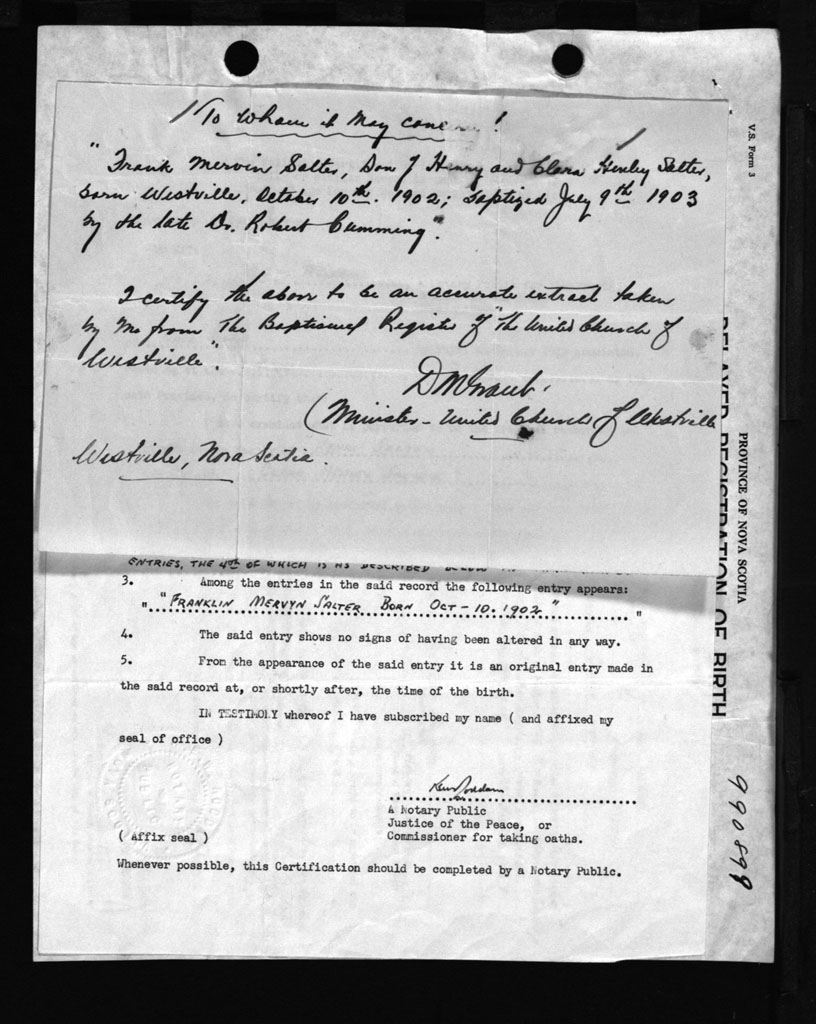 To Whom it May conce !
"Frank Mervin Salter, Son of Henry and Clara Henley Salter,
born Westville, October 10th. 1902; baptized July 9th 1903
by the late Dr. Robert Cumming".
I certify the above to be an accurate extract taken
by me from The Baptismal Register of "The United Church of
Westville".
(Minister - United Church of Westville
Westville, Nova Scotia.
ENTRIES, THE 4TH OF WHICH IS AS DESCRIBED BELOW
3. Among the entries in the said record the following entry appears:
" "FRANKLIN MERVYN SALTER BORN OCT - 10. 1902" "
4. The said entry shows no signs of having been altered in any way.
5. From the appearance of the said entry it is an original entry made in
the said record at, or shortly after, the time of the birth.
IN TESTIMOLY whereof I have subscribed my name ( and affixed my
seal of office )
A Notary Public
Justice of the Peace, or
( Affix seal ) Commissioner for taking oaths.
Whenever possible, this Certification should be completed by a Notary Public.
V.S. Form 3
PROVINCE OF NOVA SCOTIA
DELAYED REGISTRATION OF BIRTH
990899